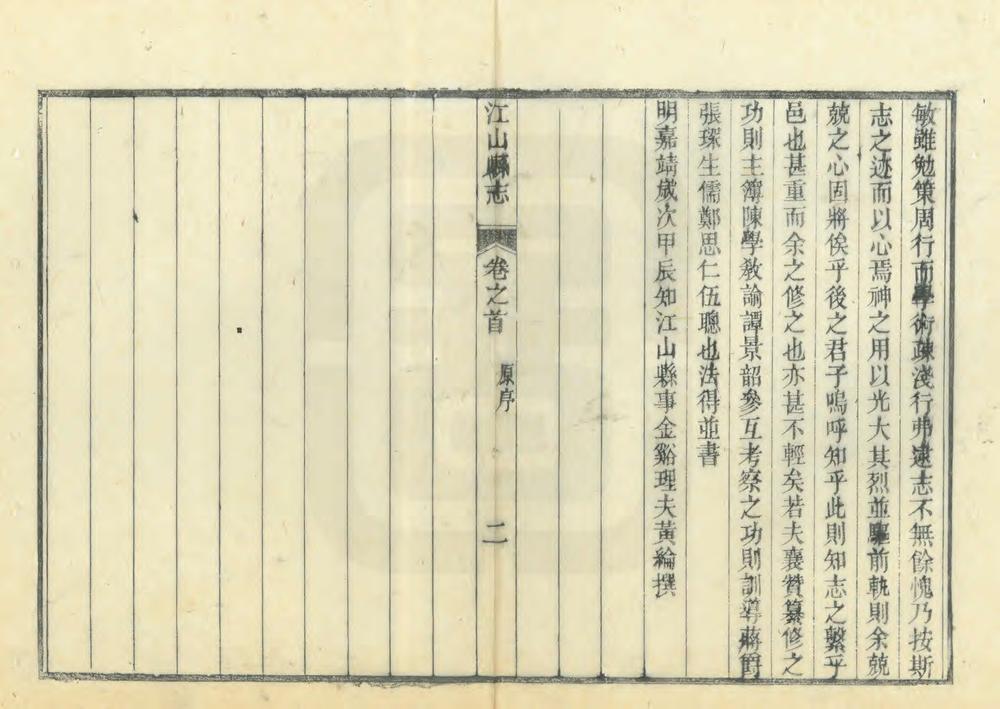 敏雖勉策周行而學術疎淺行弗逮志不無餘愧乃按斯
志之迹而以心焉神之用以光大其烈並驅前軌則余兢
兢之心固將俟乎後之君子嗚呼知乎此則知志之繫乎
邑也甚重而余之修之也亦甚不輕矣若夫襄贊纂修之
功則主簿陳學教諭譚景韶參互考察之功則訓導蔣爵
張琛生儒鄭思仁伍聰也法得並書
明嘉靖歲次甲辰知江山縣事金谿理夫黃綸撰
江山縣志
卷之首
原序
二